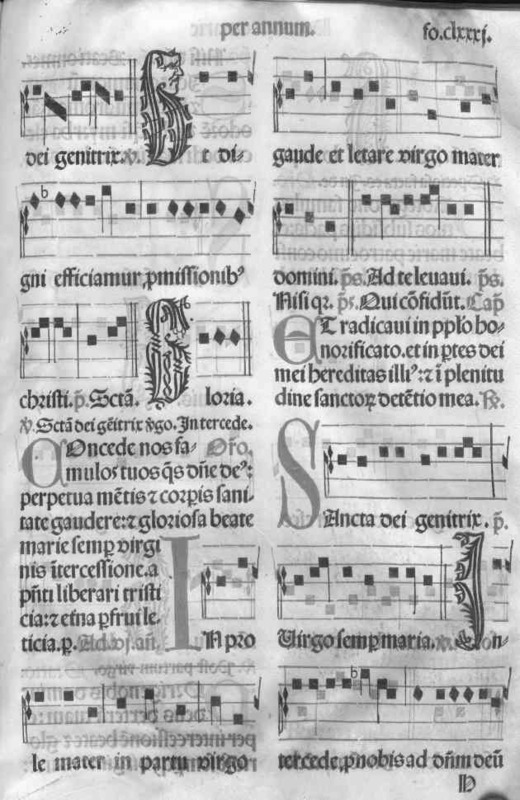 per annum.
fo.clxxxj.
dei genitrix.℣. Ut di-
gni efficiamur,pmissionibꝰ
christi.p̄. Sctā. Gloria.
℣. Sctā dei gēitrix ꝟgo. Intercede.
COncede nos fa- Oro.
mulos tuos q̄s dn̄e deꝰ:
perpetua mētis ⁊ corpis sani-
tate gaudere: ⁊ gloriosa beate
marie semp virgi
nis ītercessione.a
pn̄ti liberari tristi
cia: ⁊ etn̄a pfrui le-
ticia.p. Ad.vj.an̄. IN pro
le mater in partu virgo
gaude et letare virgo mater
domini. ps̄. Ad te leuaui. ps̄.
Nisi qr. ps̄. Qui cōfidūt. Cap̄
ET radicaui in pplo ho-
norificato.et in ptes dei
mei hereditas illiꝰ: ⁊ ī plenitu
dine sanctoꝝ detētio mea. ℟.
SAncta dei genitrix. p̄.
Uirgo semp maria. ℣. Ion-
tercede, pnobis ad dn̄m deū